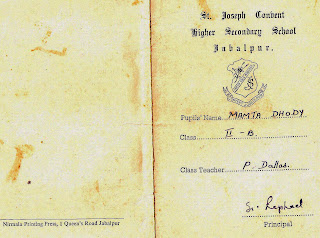 St. Joseph Convent
Higher Secondary School
Jabalpur.
Pupils' Name MAMTA DHODY
Class II - B.
Class Teacher P. Dallas.
Sr. Raphael
Principal
Nirmala Printing Press, 1 Queen's Road Jabalpur